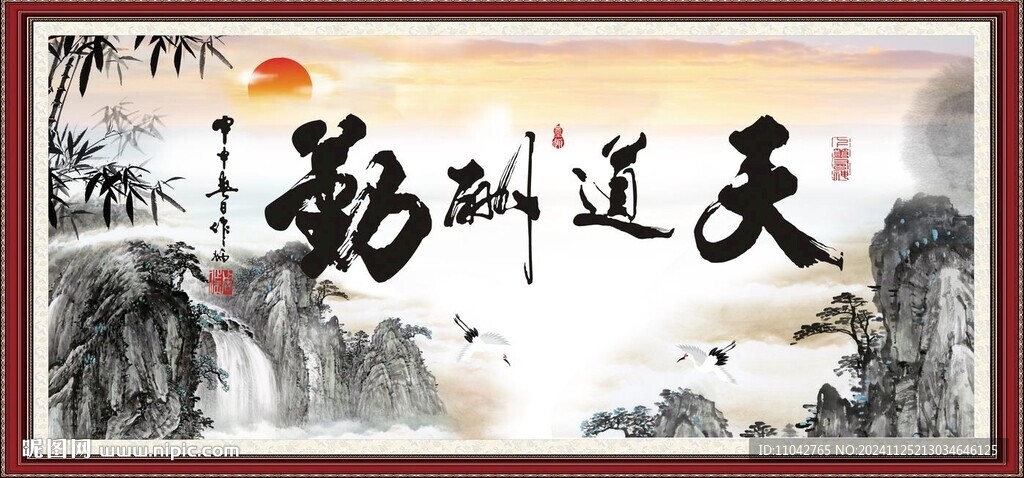 天道酬勤
昵图网 www.nipic.com
ID:11042765 NO:20241125213034646125